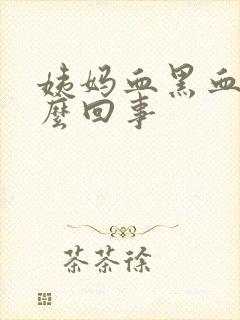 姨妈血黑血
麼回事
茶茶徐